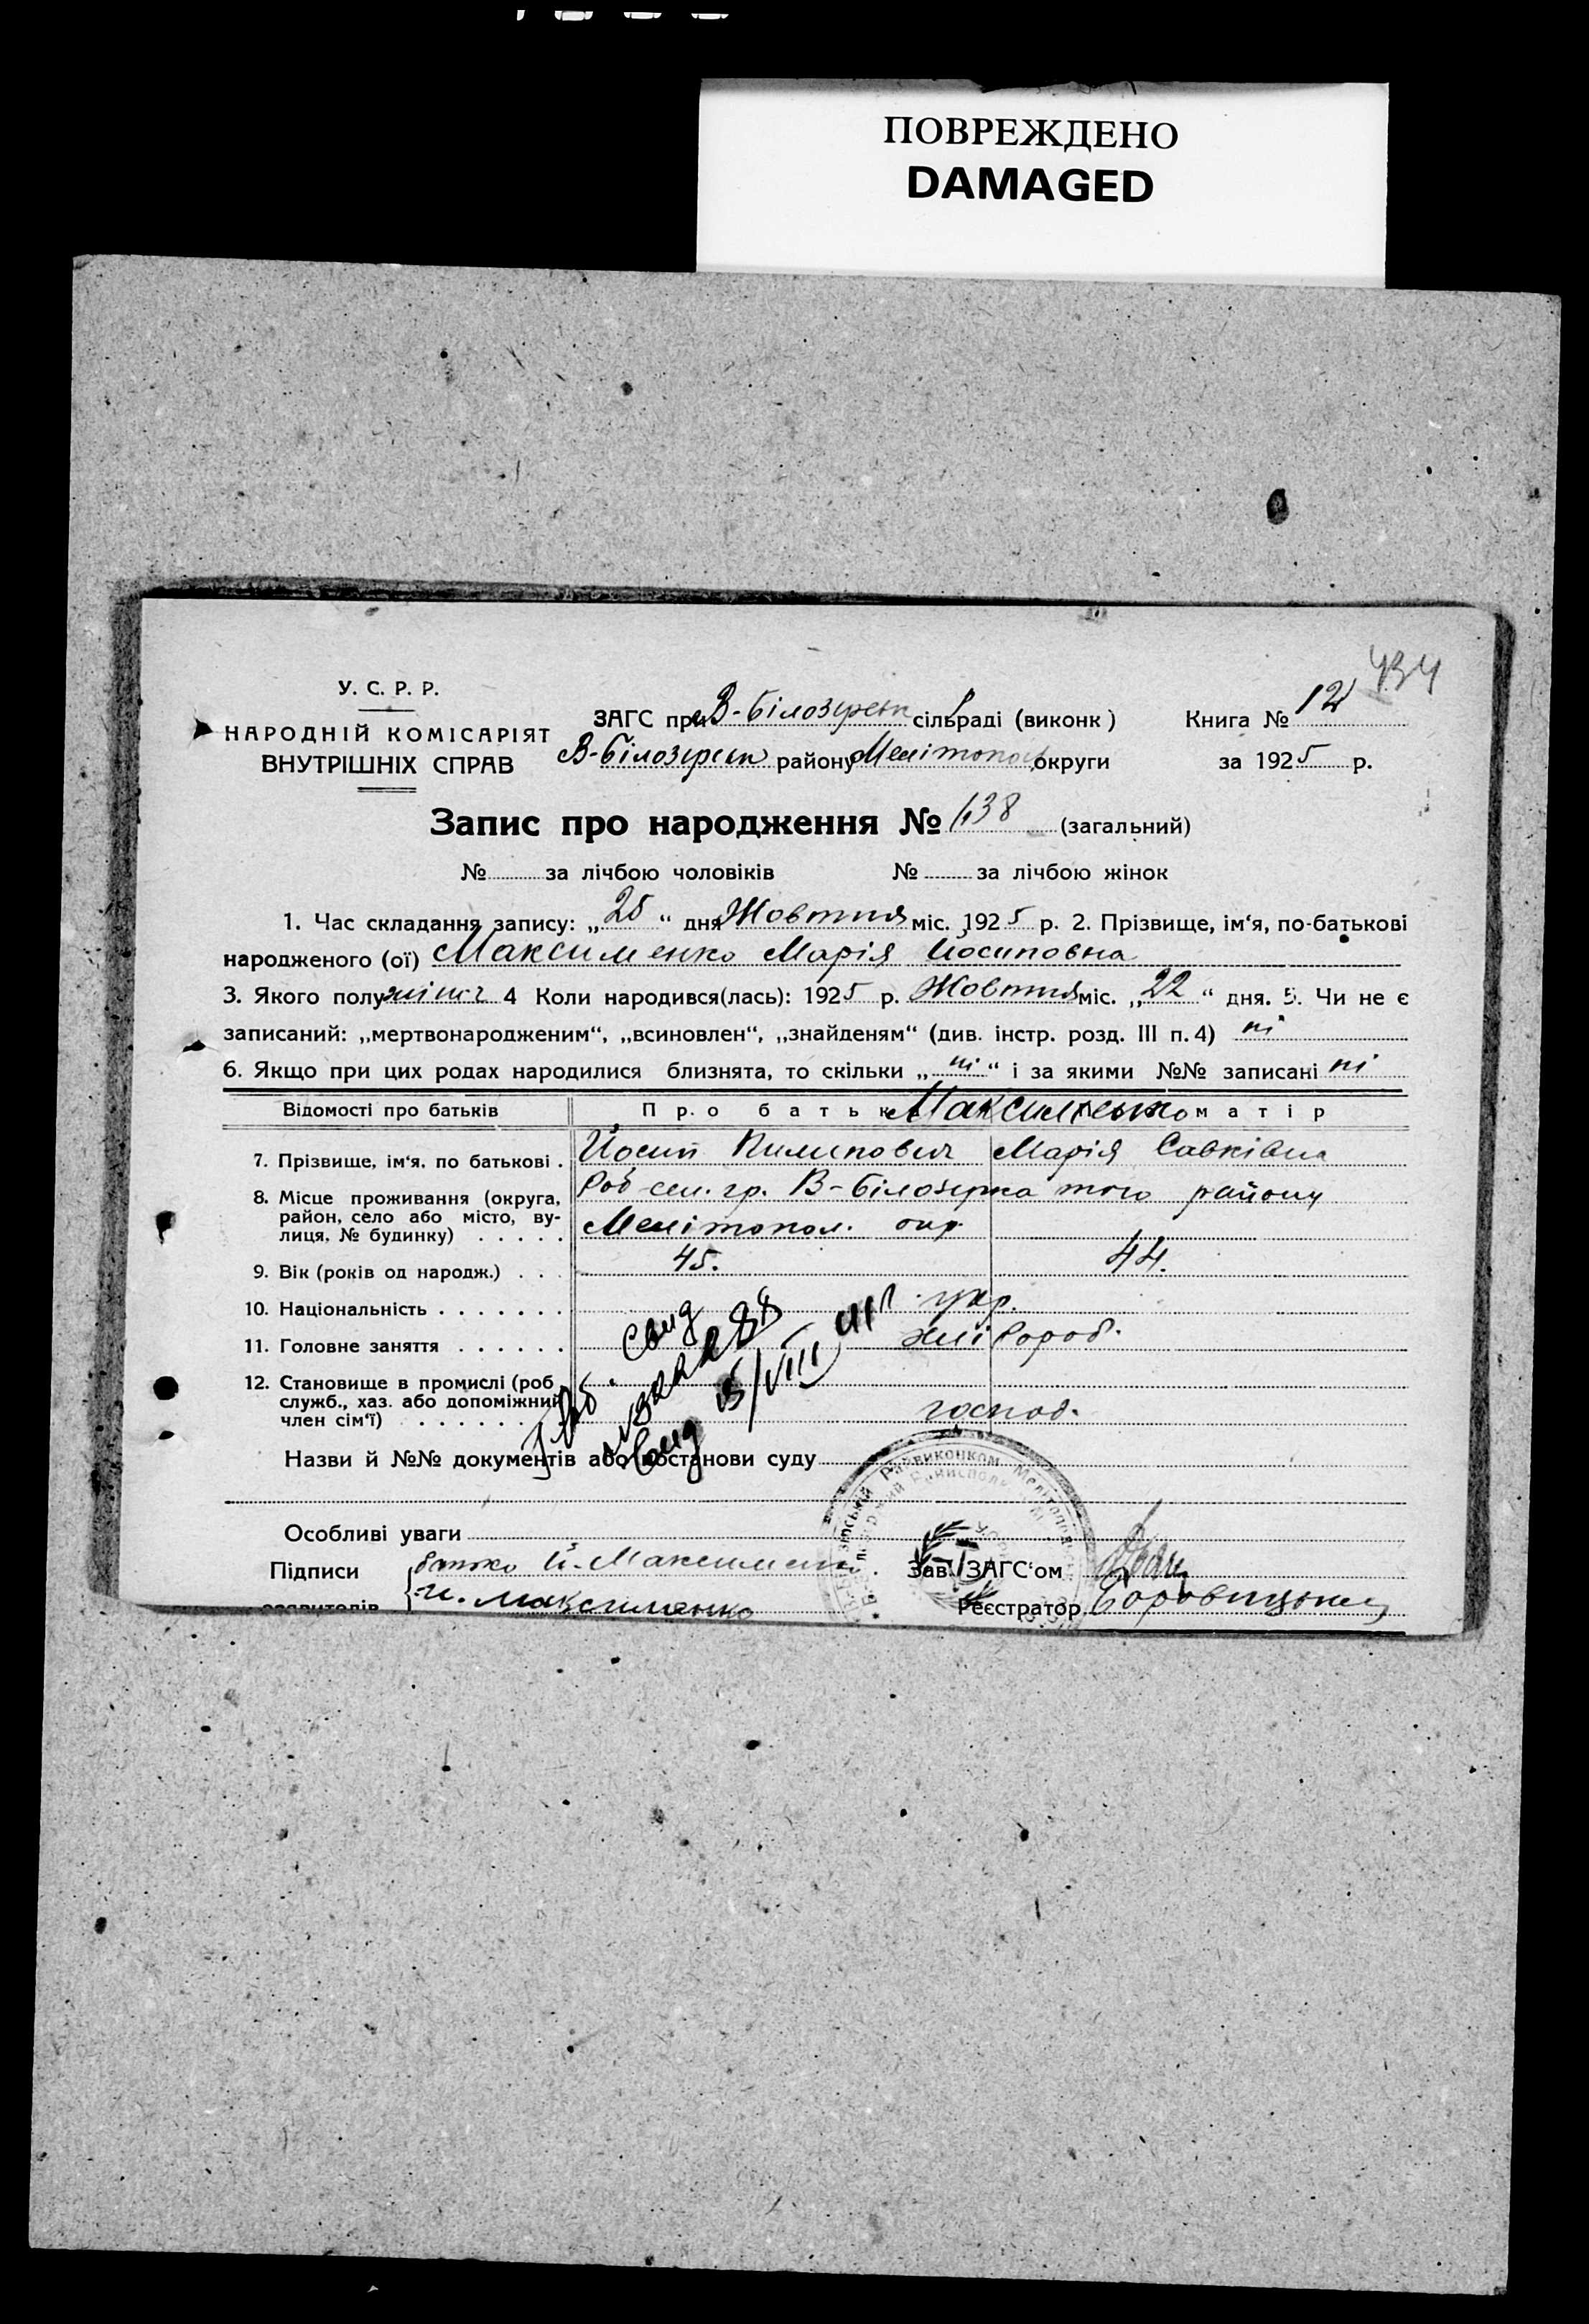 ПОВРЕЖДЕНО
DAMAGED
434
У. С. Р. Р.
НАРОДНІЙ КОМІСАРІЯТ
ВНУТРІШНІХ СПРАВ
ЗАГС при В-Білозерськ сільраді (виконк) Книга № 12
В-Білозерськ району Мелітополь округи за 1925 р.
Запис про народження № 138 (загальний)
№ за лічбою чоловіків № за лічбою жінок
1. Час складання запису: „25“ дня Жовтня міс. 1925 р. 2. Прізвище, ім'я, по-батькові
народженого (ої) Максименко Марія Йосиповна
3. Якого полу жіноч 4 Коли народився(лась): 1925 р. Жовтня міс. „22“ дня. 5. Чи не є
записаний: „мертвонародженим“, „всиновлен“, „знайденям“ (див. інстр. розд. III п. 4) ні
6. Якщо при цих родах народилися близнята, то скільки „ні“ і за якими №№ записані ні
Відомості про батьків Про батька Максименко матір
7. Прізвище, ім'я, по батькові . Йосип Пилипович Марія Савківна
8. Місце проживання (округа, район, село або місто, вулиця, № будинку) . . . . . В-Білозерка того району
Мелітопол. окр.
9. Вік (років од народж.) . . . 45. 44.
10. Національність . . . . . . . укр.
11. Головне заняття . . . . . . хлібороб.
12. Становище в промислі (роб
служб., хаз. або допоміжний
член сім'ї) . . . . . . . господ.
Назви й №№ документів або постанови суду
Особливі уваги
Підписи батько Й. Максименко Зав. ЗАГС'ом
заявителів И. Максименко Реєстратор